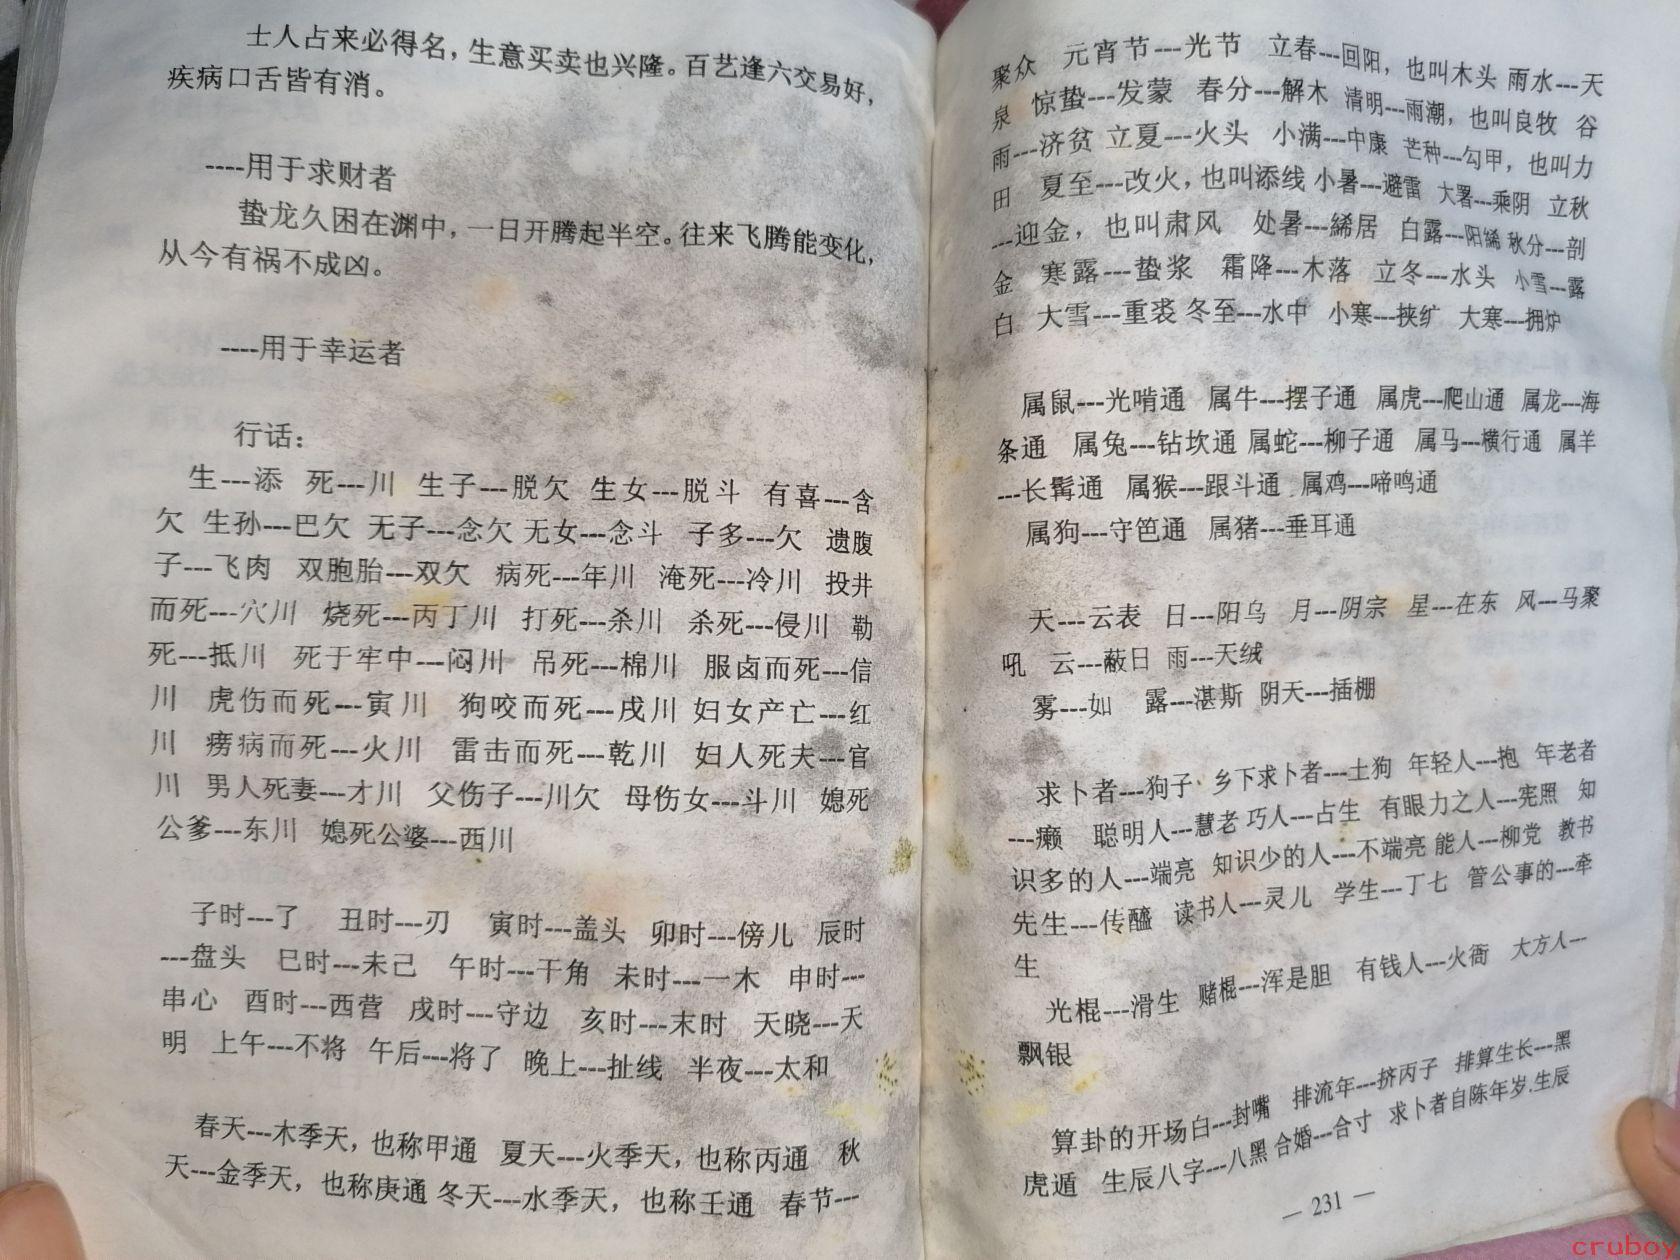 士人占来必得名，生意买卖也兴隆。百艺逢六交易好，
疾病口舌皆有消。
----用于求财者
蛰龙久困在渊中，一日开腾起半空。往来飞腾能变化，
从今有祸不成凶。
----用于幸运者
行话：
生---添 死---川 生子---脱欠 生女---脱斗 有喜---含
欠 生孙---巴欠 无子---念欠 无女---念斗 子多---欠 遗腹
子---飞肉 双胞胎---双欠 病死---年川 淹死---冷川 投井
而死---穴川 烧死---丙丁川 打死---杀川 杀死---侵川 勒
死---抵川 死于牢中---闷川 吊死---棉川 服卤而死---信
川 虎伤而死---寅川 狗咬而死---戌川 妇女产亡---红
川 痨病而死---火川 雷击而死---乾川 妇人死夫---官
川 男人死妻---才川 父伤子---川欠 母伤女---斗川 媳死
公爹---东川 媳死公婆---西川
子时---了 丑时---刃 寅时---盖头 卯时---傍儿 辰时
---盘头 巳时---未己 午时---干角 未时---一木 申时---
串心 酉时---西营 戌时---守边 亥时---末时 天晓---天
明 上午---不将 午后---将了 晚上---扯线 半夜---太和
春天---木季天，也称甲通 夏天---火季天，也称丙通 秋
天---金季天，也称庚通 冬天---水季天，也称壬通 春节---
聚众 元宵节---光节 立春---回阳，也叫木头 雨水---天
泉 惊蛰---发蒙 春分---解木 清明---雨潮，也叫良牧 谷
雨---济贫 立夏---火头 小满---中康 芒种---勾甲，也叫力
田 夏至---改火，也叫添线 小暑---避雷 大署---乘阴 立秋
---迎金，也叫肃风 处暑---絺居 白露---阳絺 秋分---剖
金 寒露---蛰浆 霜降---木落 立冬---水头 小雪---露
白 大雪---重裘 冬至---水中 小寒---挟纩 大寒---拥炉
属鼠---光啃通 属牛---摆子通 属虎---爬山通 属龙---海
条通 属兔---钻坎通 属蛇---柳子通 属马---横行通 属羊
---长髯通 属猴---跟斗通 属鸡---啼鸣通
属狗---守笆通 属猪---垂耳通
天---云表 日---阳乌 月---阴宗 星---在东 风---马聚
吼 云---蔽日 雨---天绒
雾---如 露---湛斯 阴天---插棚
求卜者---狗子 乡下求卜者---土狗 年轻人---抱 年老者
---癞 聪明人---慧老 巧人---占生 有眼力之人---宪照 知
识多的人---端亮 知识少的人---不端亮 能人---柳党 教书
先生---传醯 读书人---灵儿 学生---丁七 管公事的---牵
生
光棍---滑生 赌棍---浑是胆 有钱人---火衙 大方人---
飘银
算卦的开场白---封嘴 排流年---挤丙子 排算生长---黑
虎遁 生辰八字---八黑 合婚---合寸 求卜者自陈年岁.生辰
— 231 —
cruboy